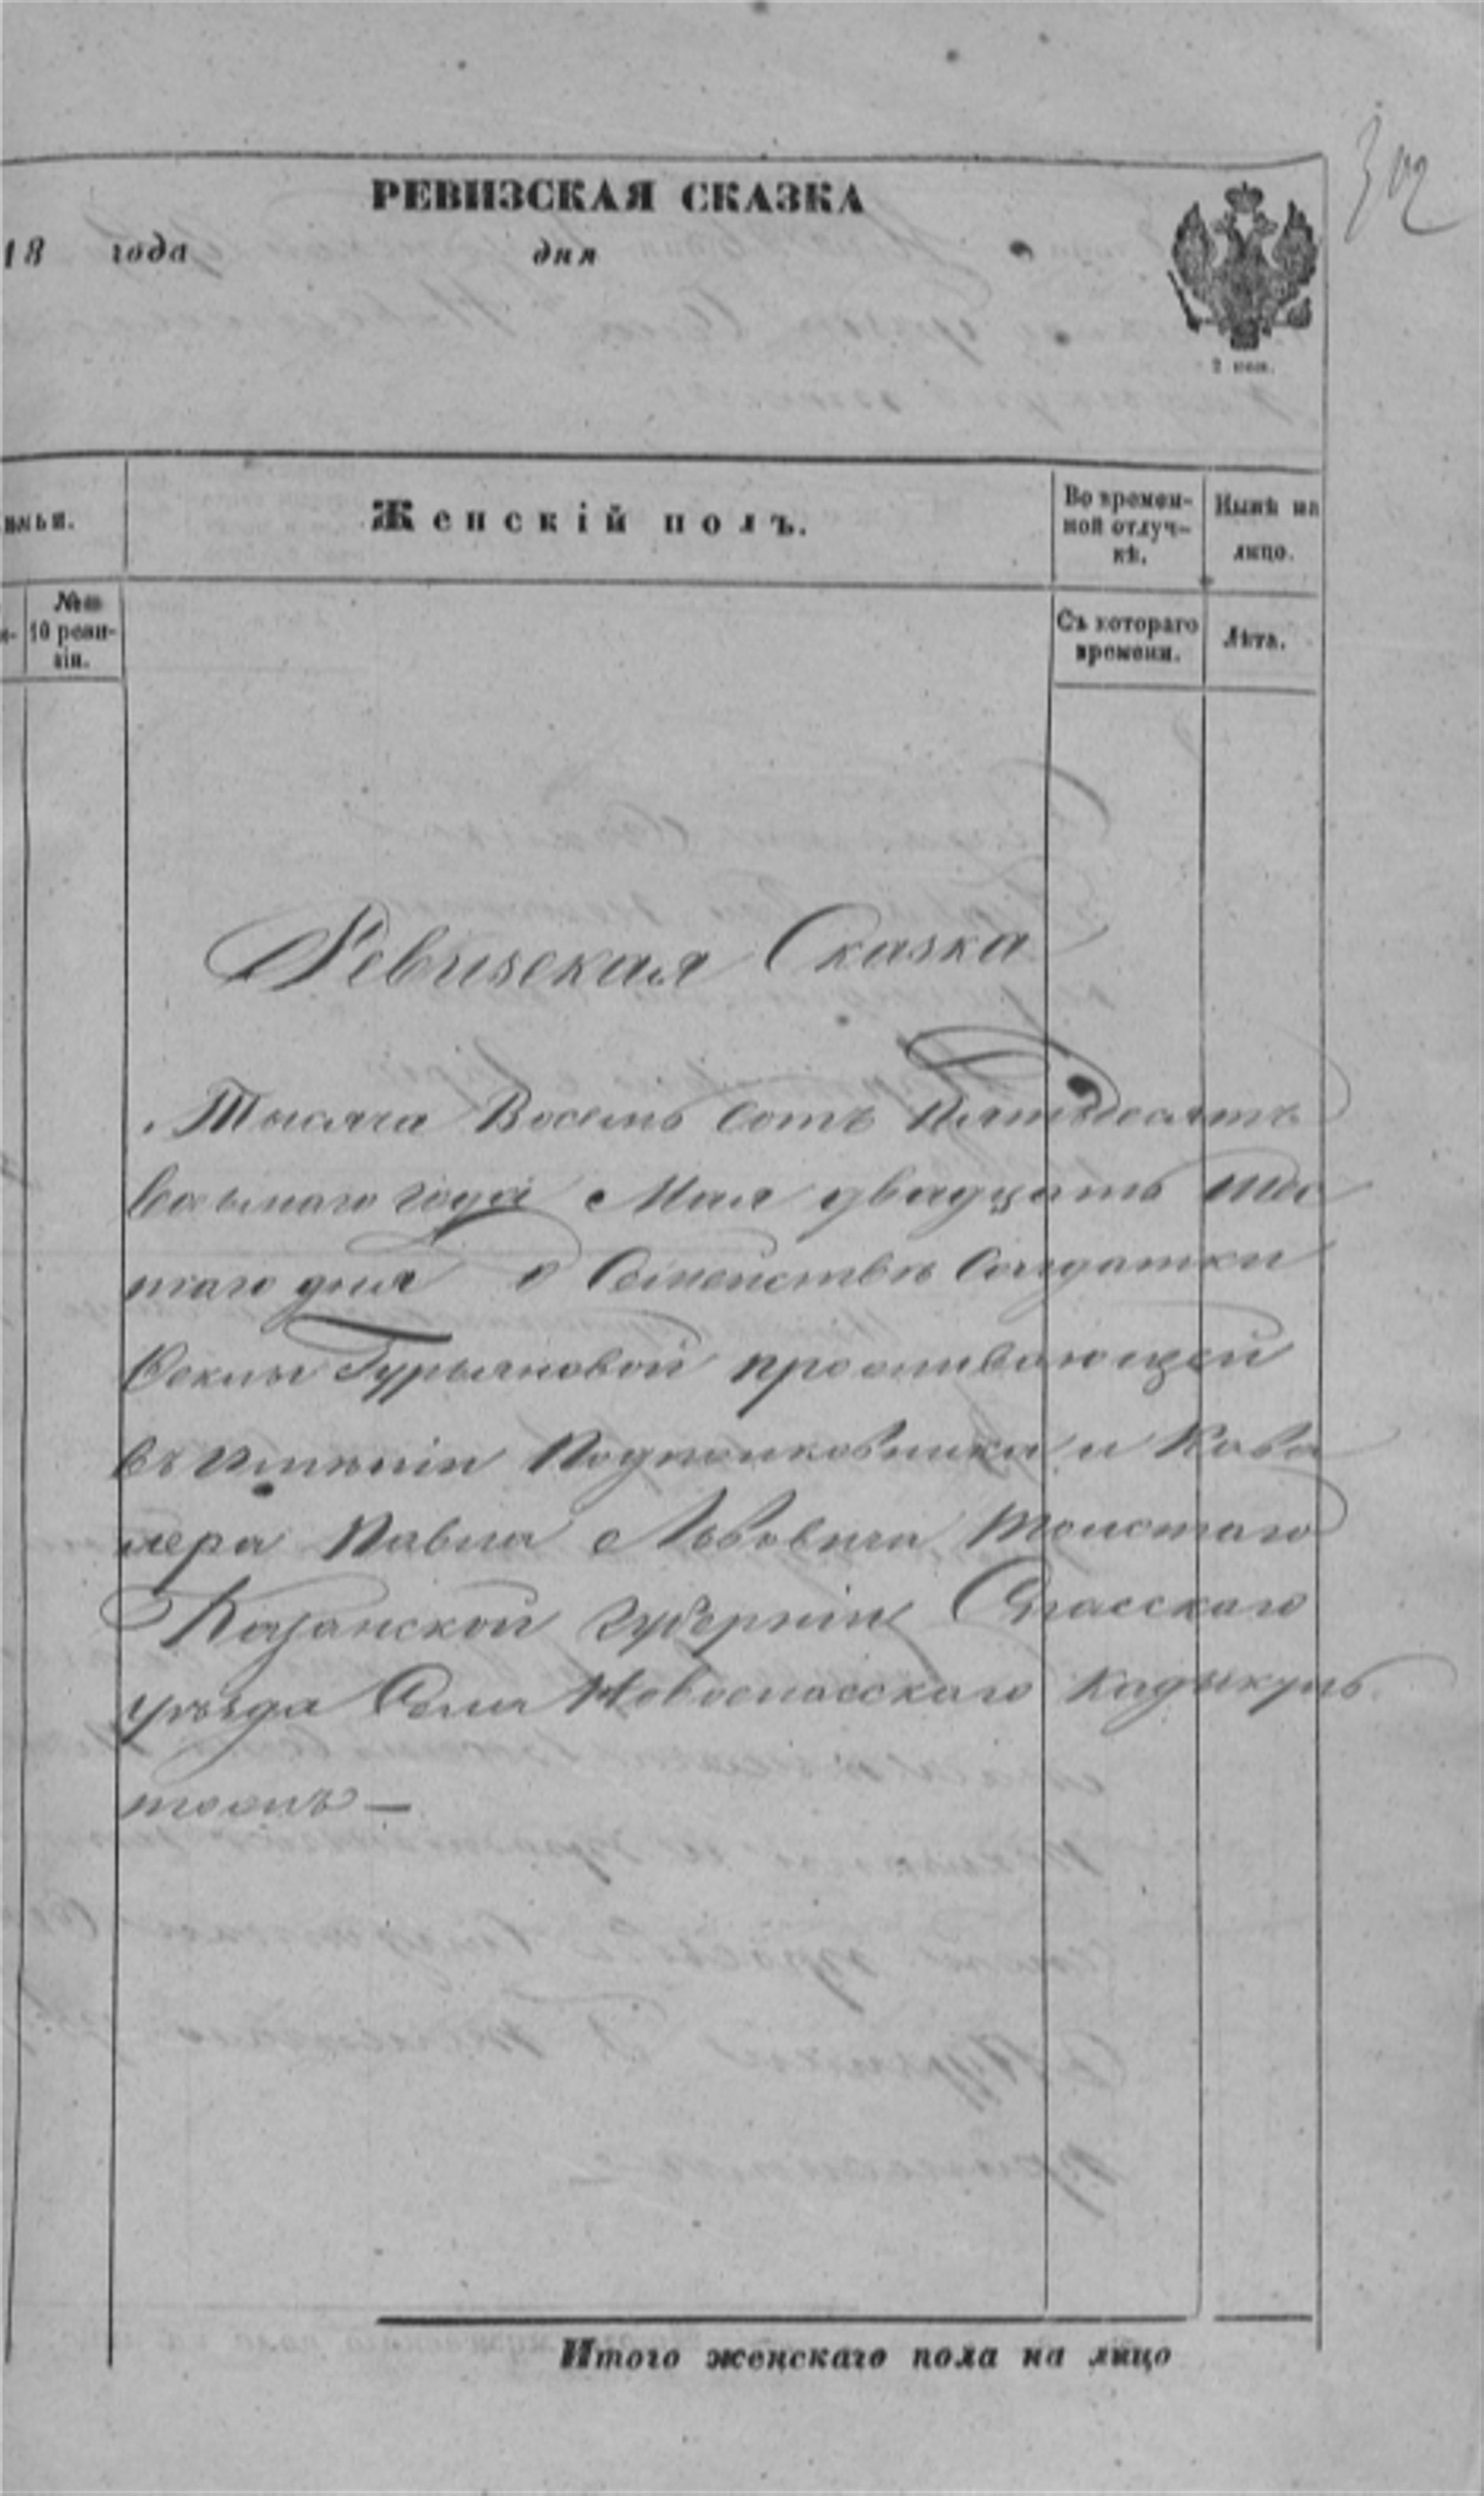 302
РЕВИЗСКАЯ СКАЗКА
18 года дня
2 коп.
имьи.
Женскій полъ.
Во времен-
ной отлуч-
кѣ.
Нынѣ на
лицо.
№№
10 реви-
зіи.
Съ котораго
времени.
Лѣта.
Ревизская Сказка
Тысяча Восемь сотъ Пятьдесятъ
восьмаго года Мая двадцать шес
таго дня О Семействѣ Солдатки
Феклы Гурьяновой проживающей
въ имѣніи Подполковника и Кава
лера Павла Львовича Толстаго
Казанской губерніи Спасскаго
уѣзда Села Новоспасскаго
тожъ —
Итого женскаго пола на лицо